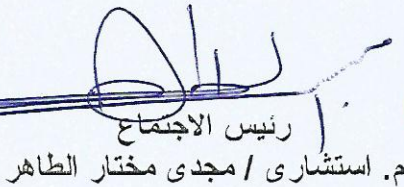 رئيس الاجتماع
م. استشارى / مجدى مختار الطاهر